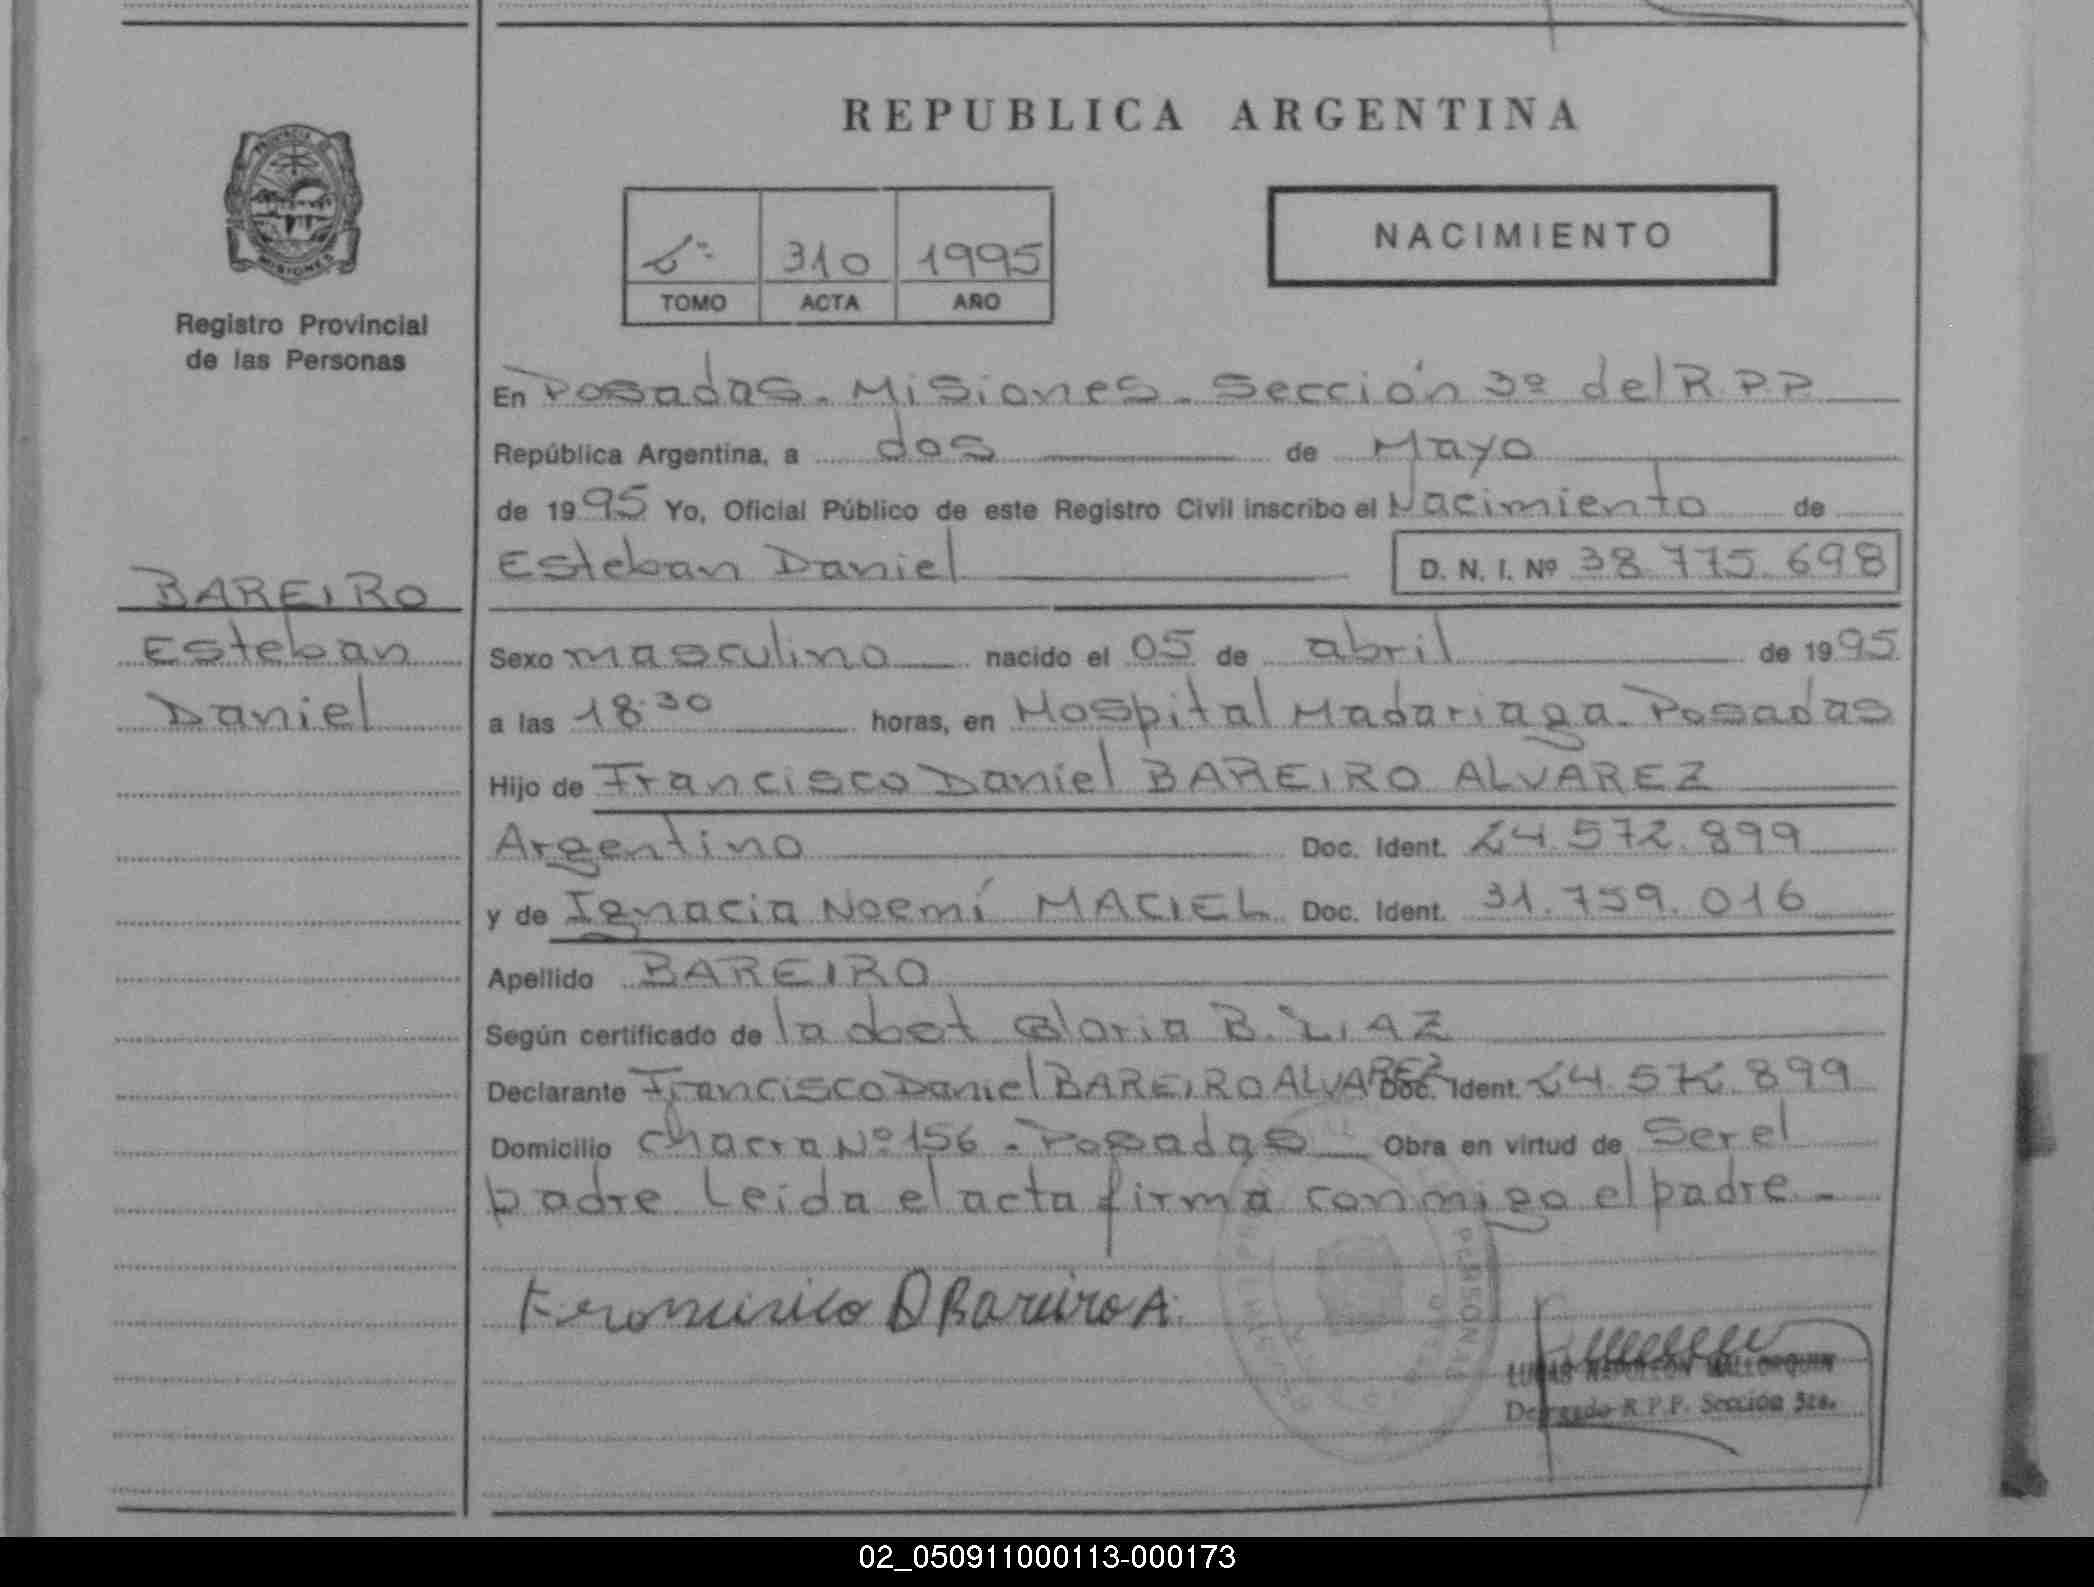 REPUBLICA ARGENTINA
PROVINCIA
MISIONES
Registro Provincial
de las Personas
310 1995
TOMO ACTA AÑO
NACIMIENTO
En Posadas. Misiones. Sección 3º del R.P.P.
República Argentina, a dos de Mayo
de 1995 Yo, Oficial Público de este Registro Civil inscribo el Nacimiento de
Esteban Daniel D. N. I. Nº 38.775.698
BAREIRO
Esteban
Daniel
Sexo masculino nacido el 05 de abril de 1995
a las 18:30 horas, en Hospital Madariaga. Posadas
Hijo de Francisco Daniel BAREIRO ALVAREZ
Argentino Doc. Ident. 24.572.899
y de Ignacia Noemí MACIEL Doc. Ident. 31.759.016
Apellido BAREIRO
Según certificado de la obst Gloria B.
Declarante Francisco Daniel BAREIRO ALVAREZ Doc. Ident. 24.572.899
Domicilio Chacra Nº 156 - Posadas Obra en virtud de Ser el
padre Leida el acta firma conmigo el padre -
Francisco D Bareiro A.
PERSONAS
LUCAS NAPOLEON MALLORQUIN
Delegado R.P.P. Sección 3ra.
02_050911000113-000173